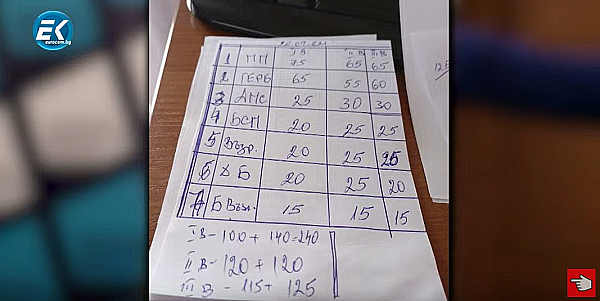 EK
eurocom.bg
I В II В III В
1 ПП 75 65 65
2 ГЕРБ 65 55 60
3 ДПС 25 30 30
4 БСП 20 25 25
5 Възр. 20 25 25
6 ДБ 20 25 20
7 Б Възх. 15 15 15
I В - 100 + 140 = 240
II В - 120 + 120
III В - 115 + 125